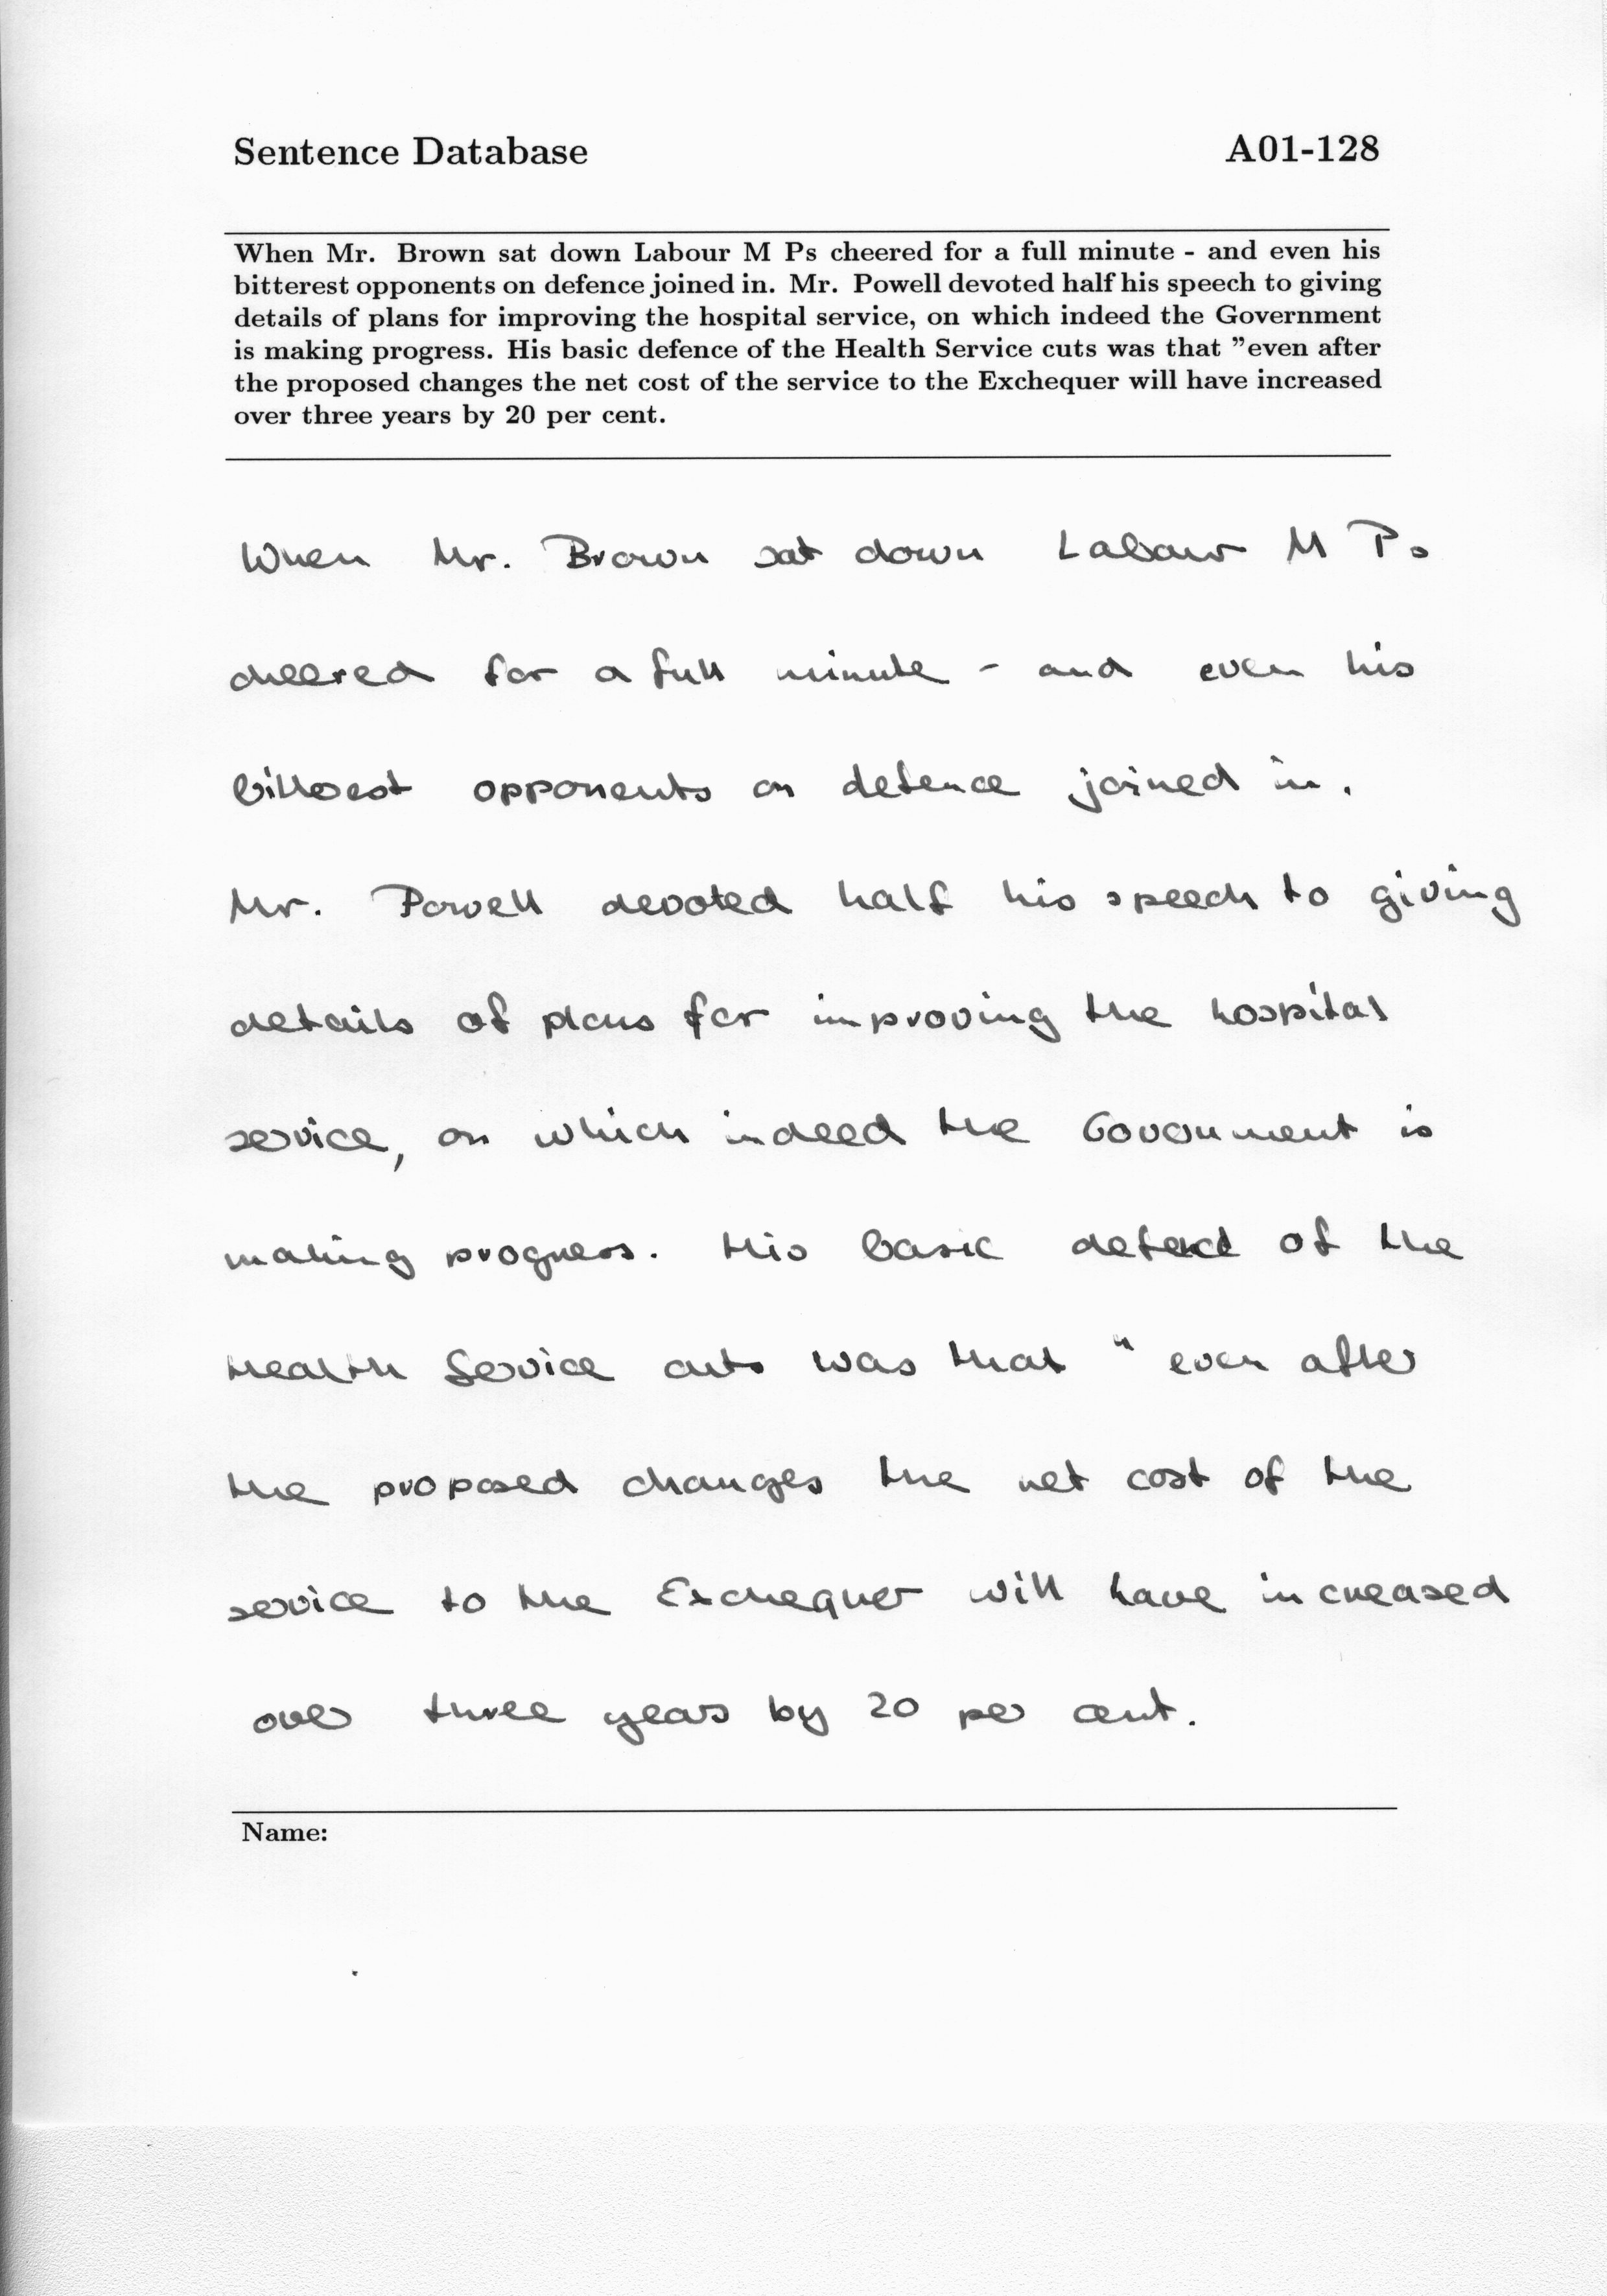 Sentence Database A01-128
When Mr. Brown sat down Labour M Ps cheered for a full minute - and even his
bitterest opponents on defence joined in. Mr. Powell devoted half his speech to giving
details of plans for improving the hospital service, on which indeed the Government
is making progress. His basic defence of the Health Service cuts was that "even after
the proposed changes the net cost of the service to the Exchequer will have increased
over three years by 20 per cent.
When Mr. Brown sat down Labour M Ps
cheered for a full minute - and even his
bitterest opponents on defence joined in.
Mr. Powell devoted half his speech to giving
details of plans for improving the hospital
service, on which indeed the Government is
making progress. His basic of the
Health Service cuts was that " even after
the proposed changes the net cost of the
service to the Exchequer will have increased
over three years by 20 per cent.
Name: